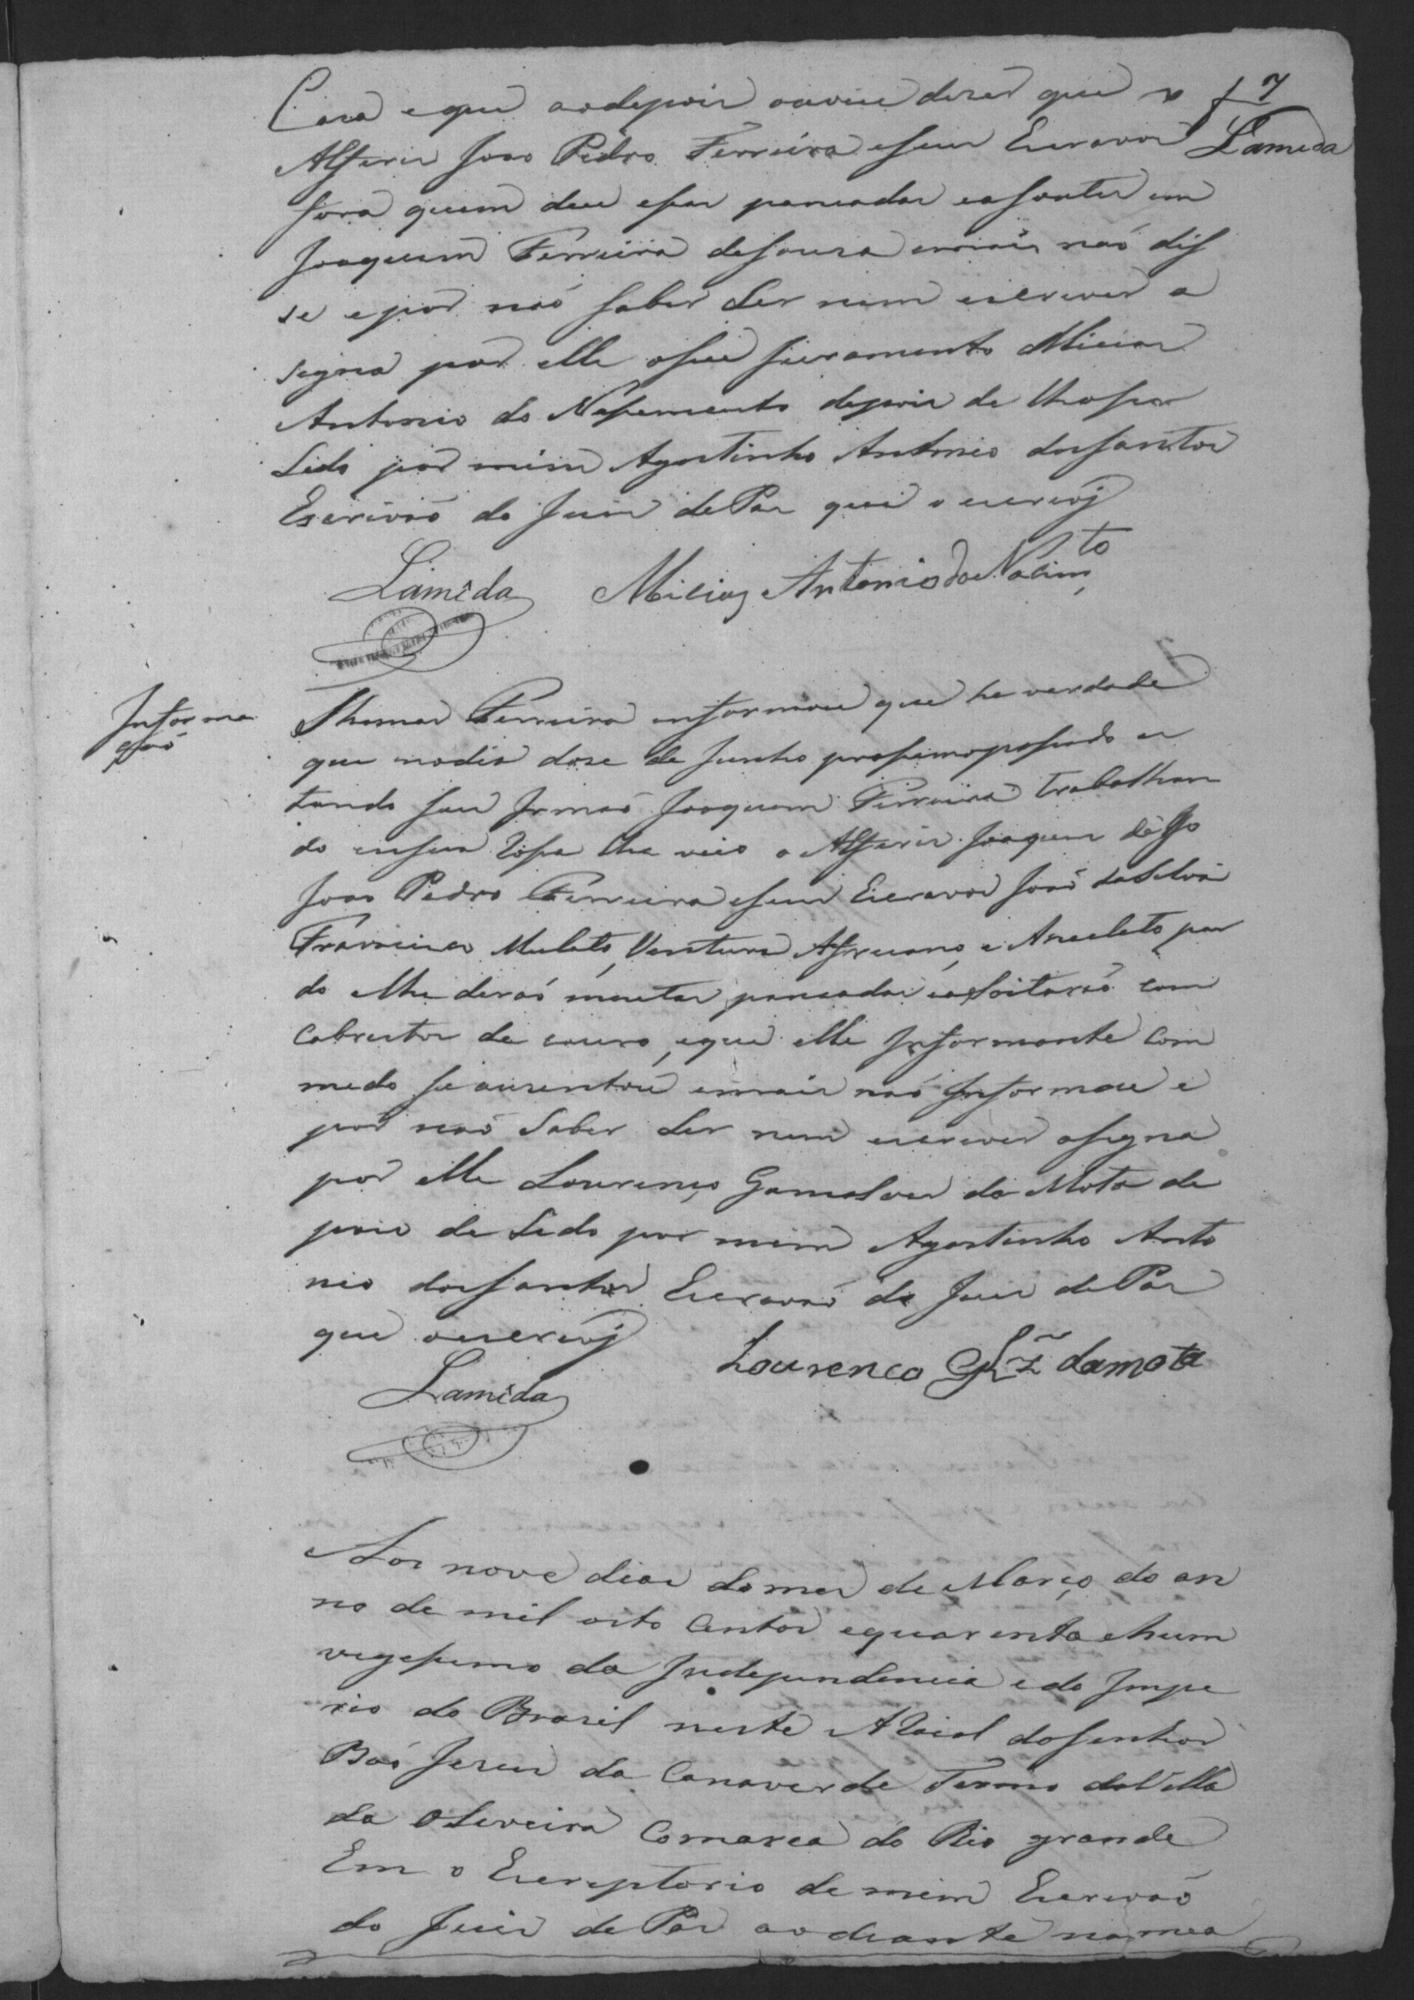 7
Lameda
Casa e que aodepois ouviu dizer que o
Alferes Joao Pedro Ferreira eseus Escravos
fora quem deu esas pancadas easoutes em
Joaquim Ferreira desousa emais naó dis
se e por naó saber Ler nem escrever a
signa por elle oseu juramento Micias
Antonio do Nassemento depois de lhoser
Lido por mim Agostinho Antonio dossantos
Escrivaó do Juis dePas que o escrevj
Lameda Micias Antonio do Nacimto
Informa
çaó
Thomas Ferreira informou que he verdade
que nodia dose de Junho proссimopassado es
tando seu Irmaó Joaquim Ferreira trabalhan
do emsua Rossa lhe veio o Alferes Joaquim digo
Joao Pedro Ferreira eseus Escravos Joaó daSilva
Francisco Mulato, Ventura Africano, e Anacleto par
do elhe deraó muitas pancadas easoitaraó com
Cabrestos de couro, eque elle Informante com
medo seausentou emais naó Informou e
por naó Saber Ler nem escrever asigna
por elle Lourenço Gonsalves da Mota de
pois de Lido por mim Agostinho Anto
nio dossantos Escrivaó do Juis dePas
que oescrevj
Lameda Lourenco Glz damota
Aos nove dias domes de Março do an
no de mil oito Centos equarenta ehum
vigessimo da Independencia e do Impe
rio do Brasil neste ARaial doSenhor
Bom Jesus da Canaverde Termo daVilla
da Oliveira Comarca do Rio grande
Em o Escriptorio de mim Escrivaó
do Juis de Pas aodiante nomea